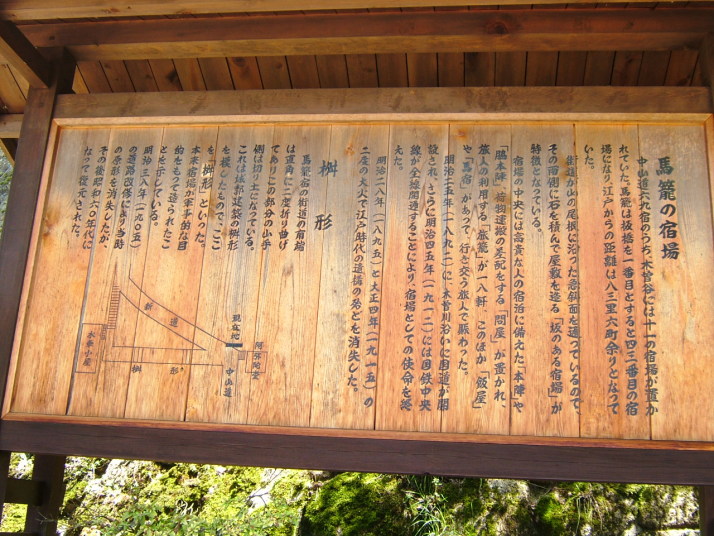 馬籠の宿場
中山道六九宿のうち、木曽谷には十一の宿場が置か
れていた。馬籠は板橋を一番目とすると四三番目の宿
場になり、江戸からの距離は八三里六町余りとなって
いた。
街道が山の尾根に沿った急斜面を通っているので、
その両側に石を積んで屋敷を造る「坂のある宿場」が
特徴となっている。
宿場の中央には高貴な人の宿泊に備えた「本陣」や
「脇本陣」、荷物運搬の差配をする「問屋」が置かれ、
旅人の利用する「旅籠」が一八軒、このほか「飯屋」
や「馬宿」があって、行き交う旅人で賑わった。
明治二五年(一八九二)に、木曽川沿いに国道が開
設され、さらに明治四五年(一九一二)には国鉄中央
線が全線開通することにより、宿場としての使命を終
えた。
明治二八年(一八九五)と大正四年(一九一五)の
二度の大火で江戸時代の遺構の殆どを消失した。
桝形
馬籠宿の街道の両端
は直角に二度折り曲げ
てありこの部分の山手
側は切り土になっている。
これは城郭建築の桝形
を模したもので、ここ
を「桝形」といった。
本来宿場が軍事的な目
的をもって造られたこ
とを示している。
明治三八年(一九〇五)
の道路改修により当時
の原形を消失したが、
その後昭和六〇年代に
なって復元された。
阿弥陀堂
現在地
中山道
新道
桝形
水車小屋